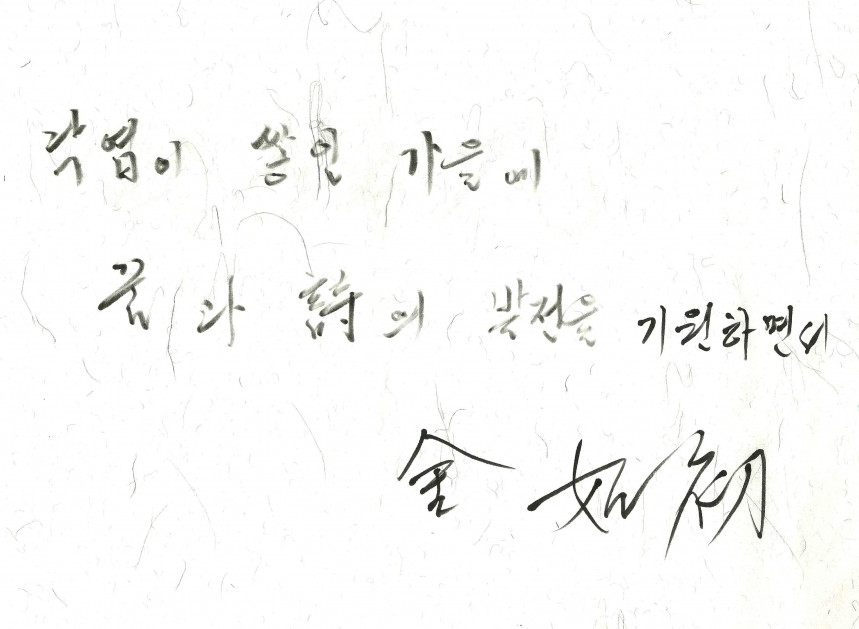 낙엽이 쌓인 가을에
꿈과 詩의 발전을 기원하면서
金 如初